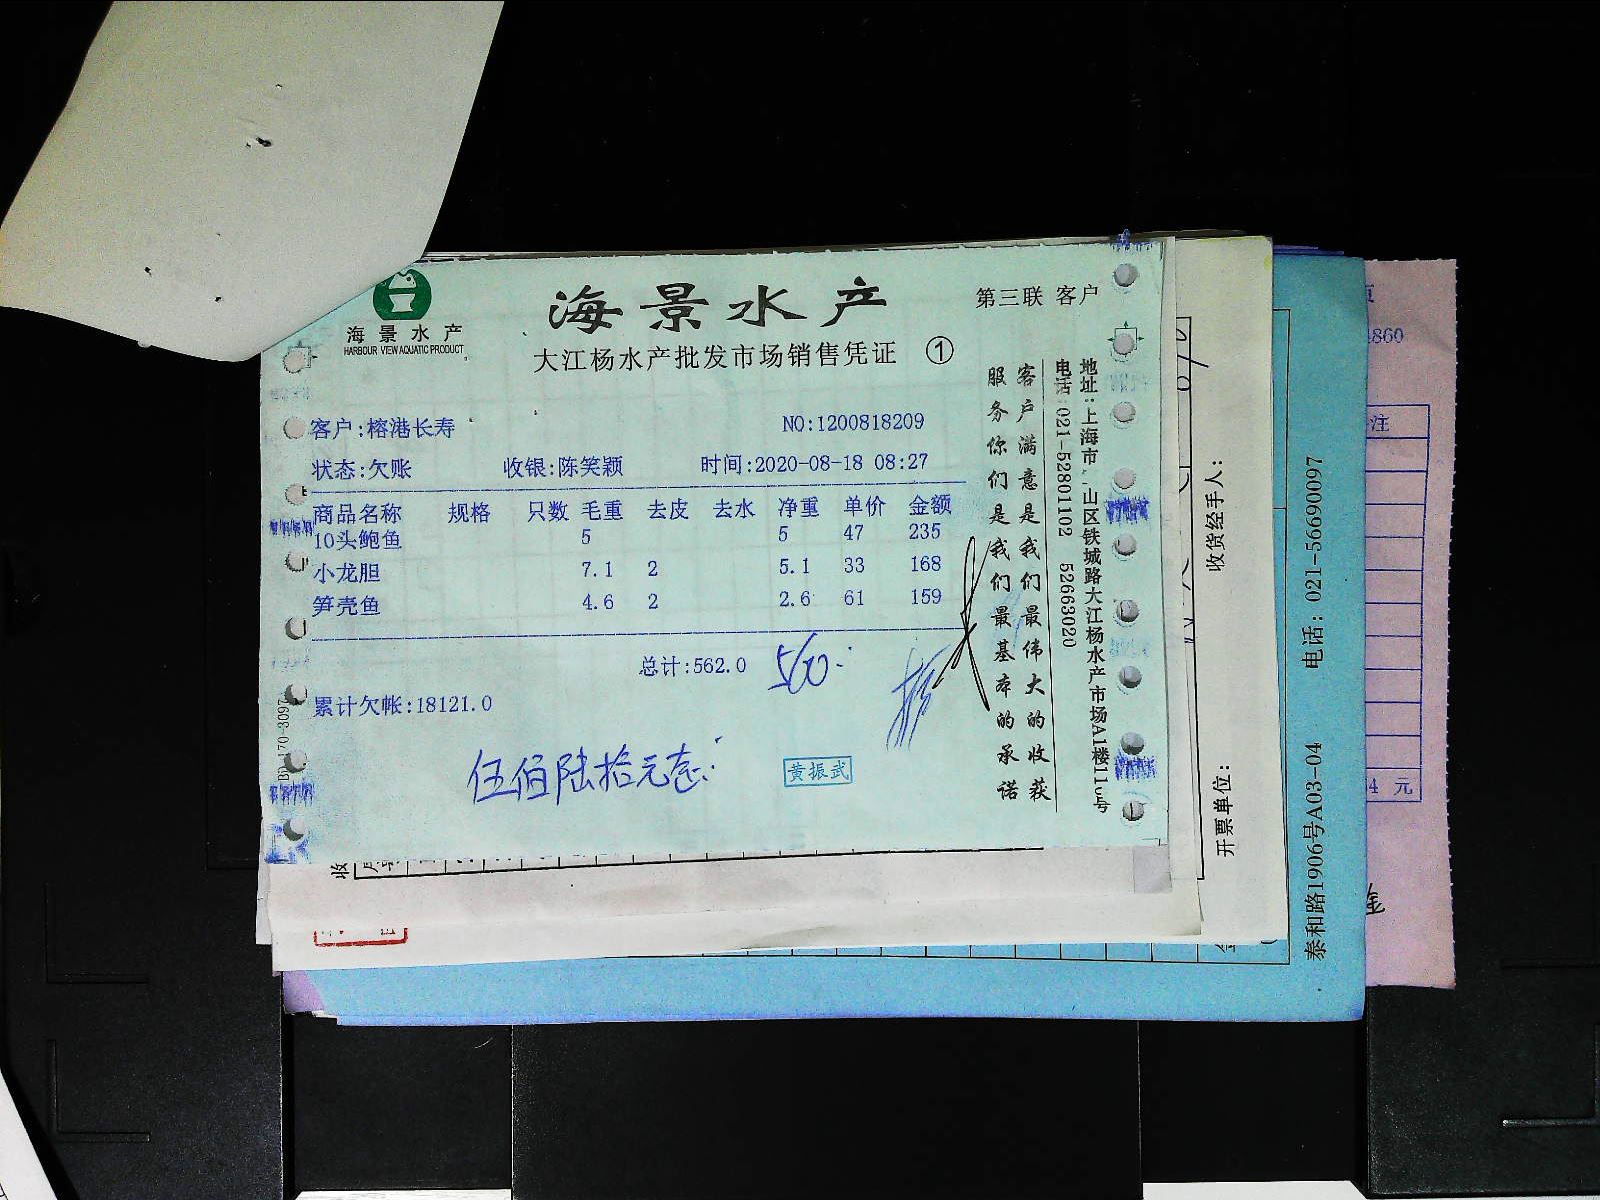 海景水产
HARBOUR VIEW AQUATIC PRODUCT
海景水产
第三联 客户
大江杨水产批发市场销售凭证 ①
客户:榕港长寿 NO:1200818209
状态:欠账 收银:陈笑颖 时间:2020-08-18 08:27
商品名称 规格 只数 毛重 去皮 去水 净重 单价 金额
10头鲍鱼 5 5 47 235
小龙胆 7.1 2 5.1 33 168
笋壳鱼 4.6 2 2.6 61 159
总计:562.0 560.-
累计欠帐:18121.0
伍佰陆拾元整
黄振武
客户满意是我们最伟大的收获
服务你们是我们最基本的承诺
地址:上海市 山区铁城路大江杨水产市场A1楼11 号
电话:021-52801102 52663020
收货经手人:
开票单位:
泰和路1906号A03-04 电话: 021-56690097
4860
注
4 元
收